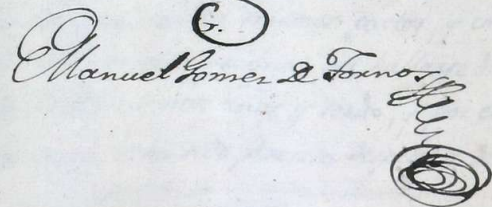 G.
Manuel Gomez De Tornos